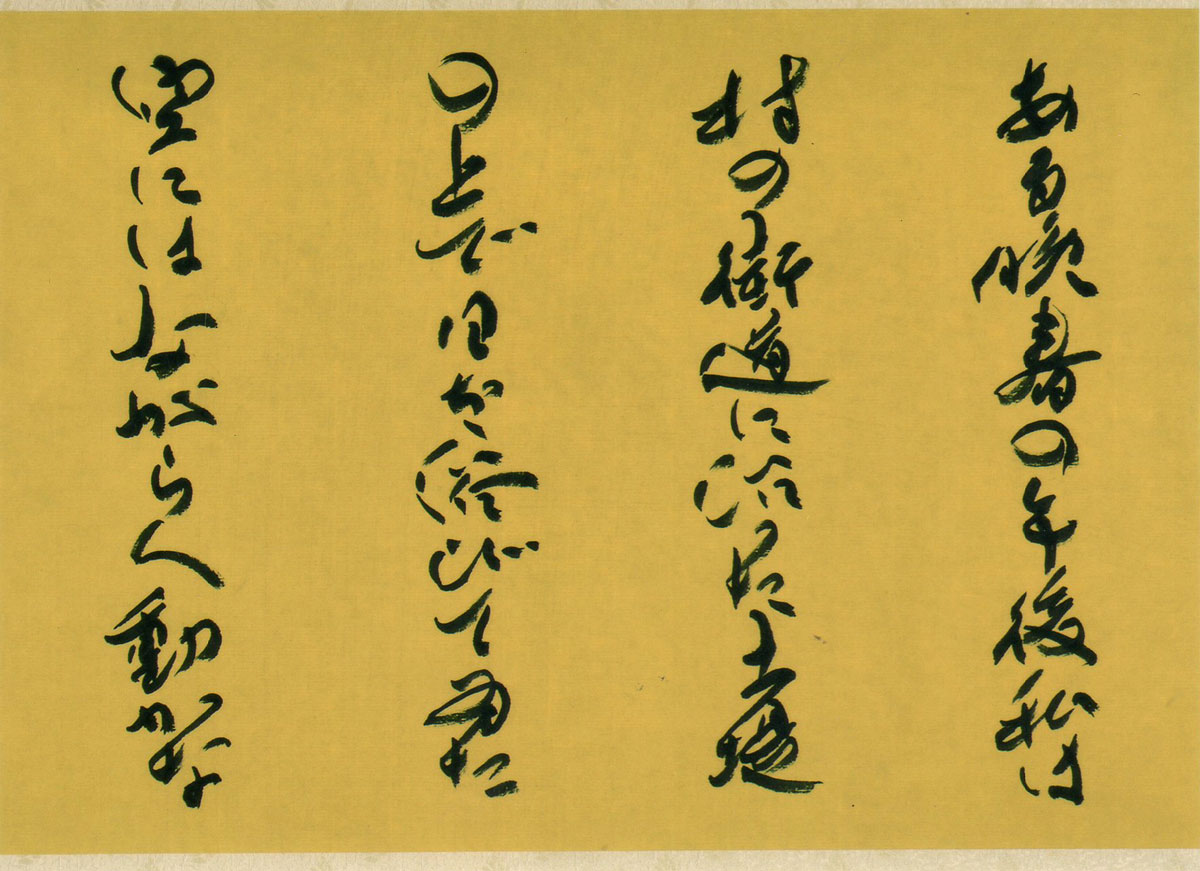 ある晩春の午後私は
村の街道に沿つた土堤
の上で日を浴びてゐた
空にはながらく動かな